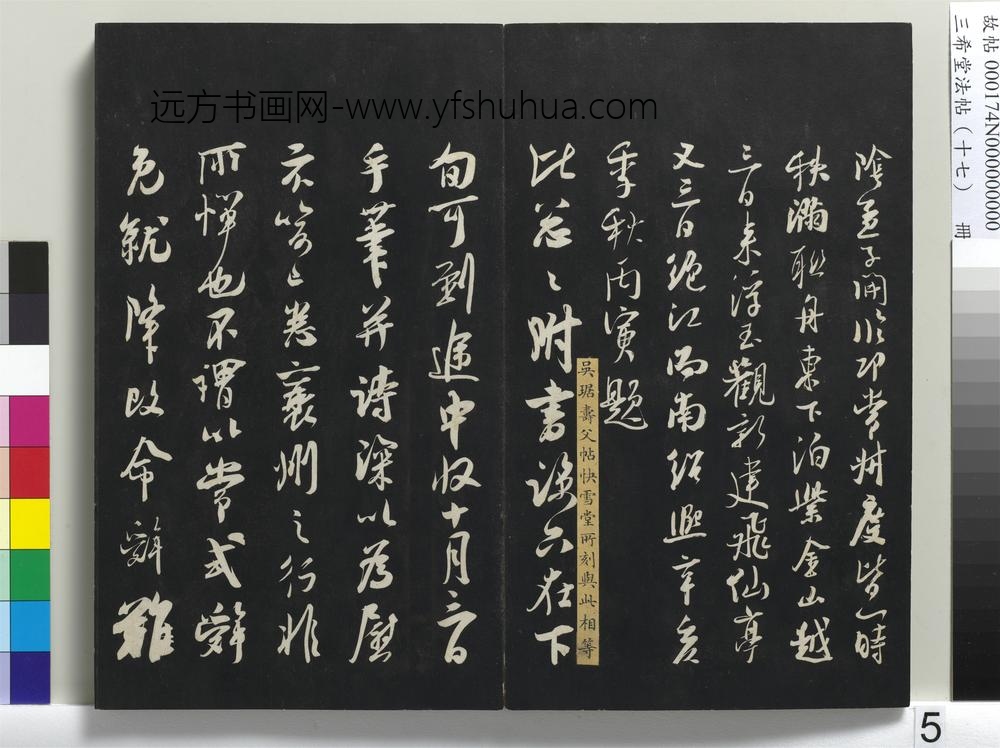 故帖 000174N000000000
三希堂法帖（十七） 冊
远方书画网-www.yfshuhua.com
陰孟子開 卭常州度皆一時
秩滿聯舟東下泊紫金山越
三日来浮玉觀新建飛仙亭
又三日絕江而南紹興辛亥
季秋丙寅題
吳琚壽父帖快雪堂所刻與此相等
比忩々附書 只在下
旬可到途中收十月六日
手筆并詩深以為慰
悉襄州之行非
所憚也不謂以常式辭
免就降改命辭難
5